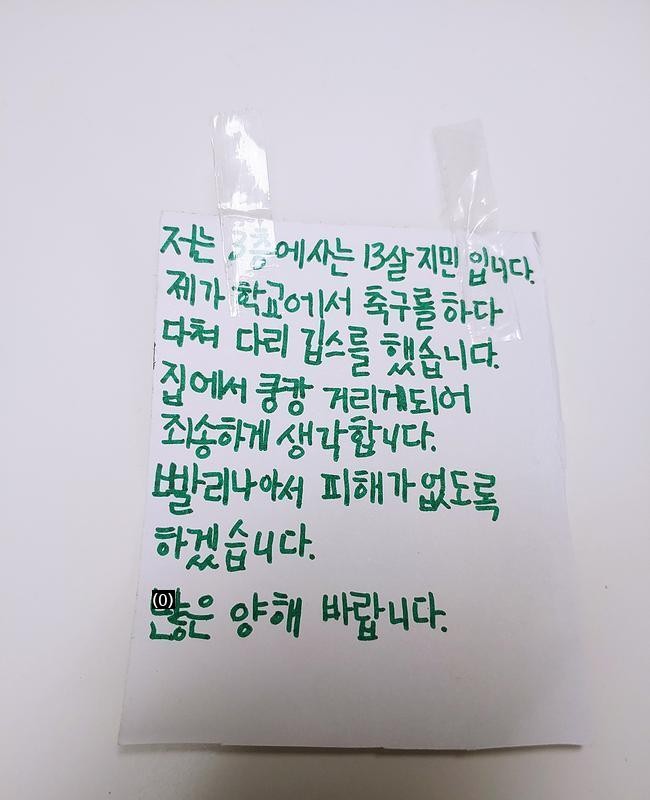 저는 3층에사는 13살 지민 입니다.
제가 학교에서 축구를 하다
다쳐 다리 깁스를 했습니다.
집에서 쿵쾅 거리게되어
죄송하게 생각합니다.
빨리나아서 피해가 없도록
하겠습니다.
많은 양해 바랍니다.